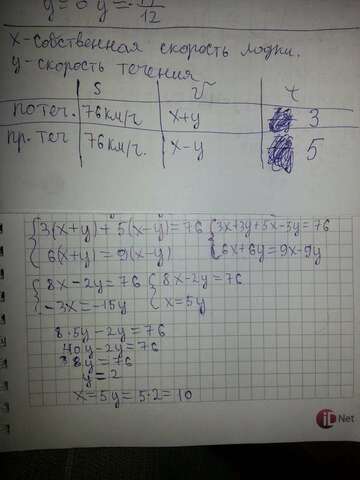 y=0 y=-11/12
x-собственная скорость лодки.
y-скорость течения
S | v | t
по теч. | 76км/ч. | x+y | 3
пр. теч | 76км/ч. | x-y | 5
{3(x+y)+5(x-y)=76 {3x+3y+5x-5y=76
{6(x+y)=9(x-y) {6x+6y=9x-9y
{8x-2y=76 {8x-2y=76
{-3x=-15y {x=5y
8·5y-2y=76
40y-2y=76
38y=76
y=2
x=5y=5·2=10
Net